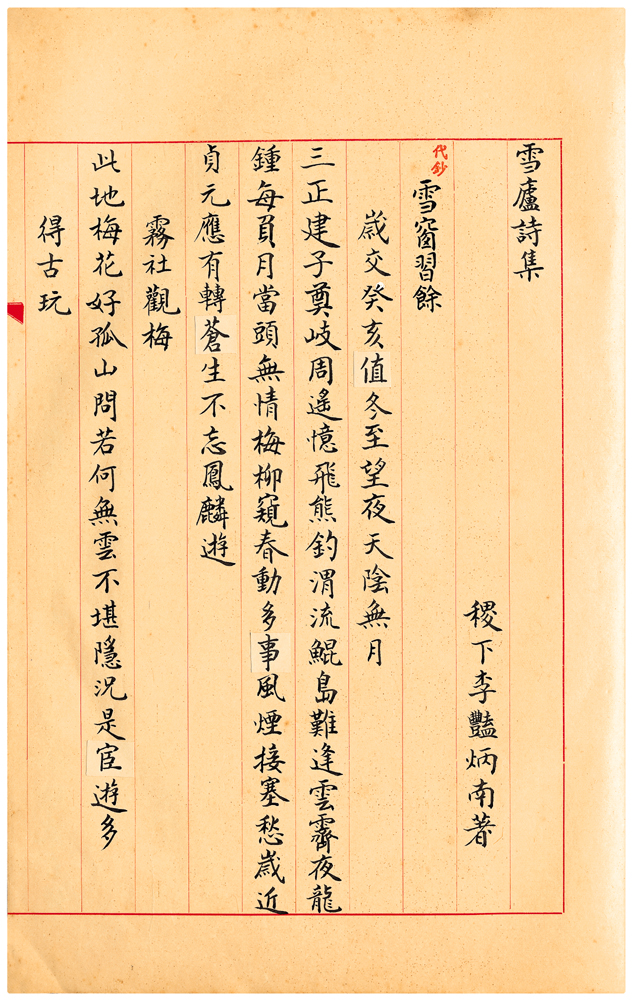 雪廬詩集
稷下李豔炳南著
代鈔
雪窗習餘
歲交癸亥值冬至望夜天陰無月
三正建子奠岐周遙憶飛熊釣渭流鯤島難逢雲霽夜龍
鍾每負月當頭無情梅柳窺春動多事風煙接塞愁歲近
貞元應有轉蒼生不忘鳳麟遊
霧社觀梅
此地梅花好孤山問若何無雲不堪隱況是宦遊多
得古玩